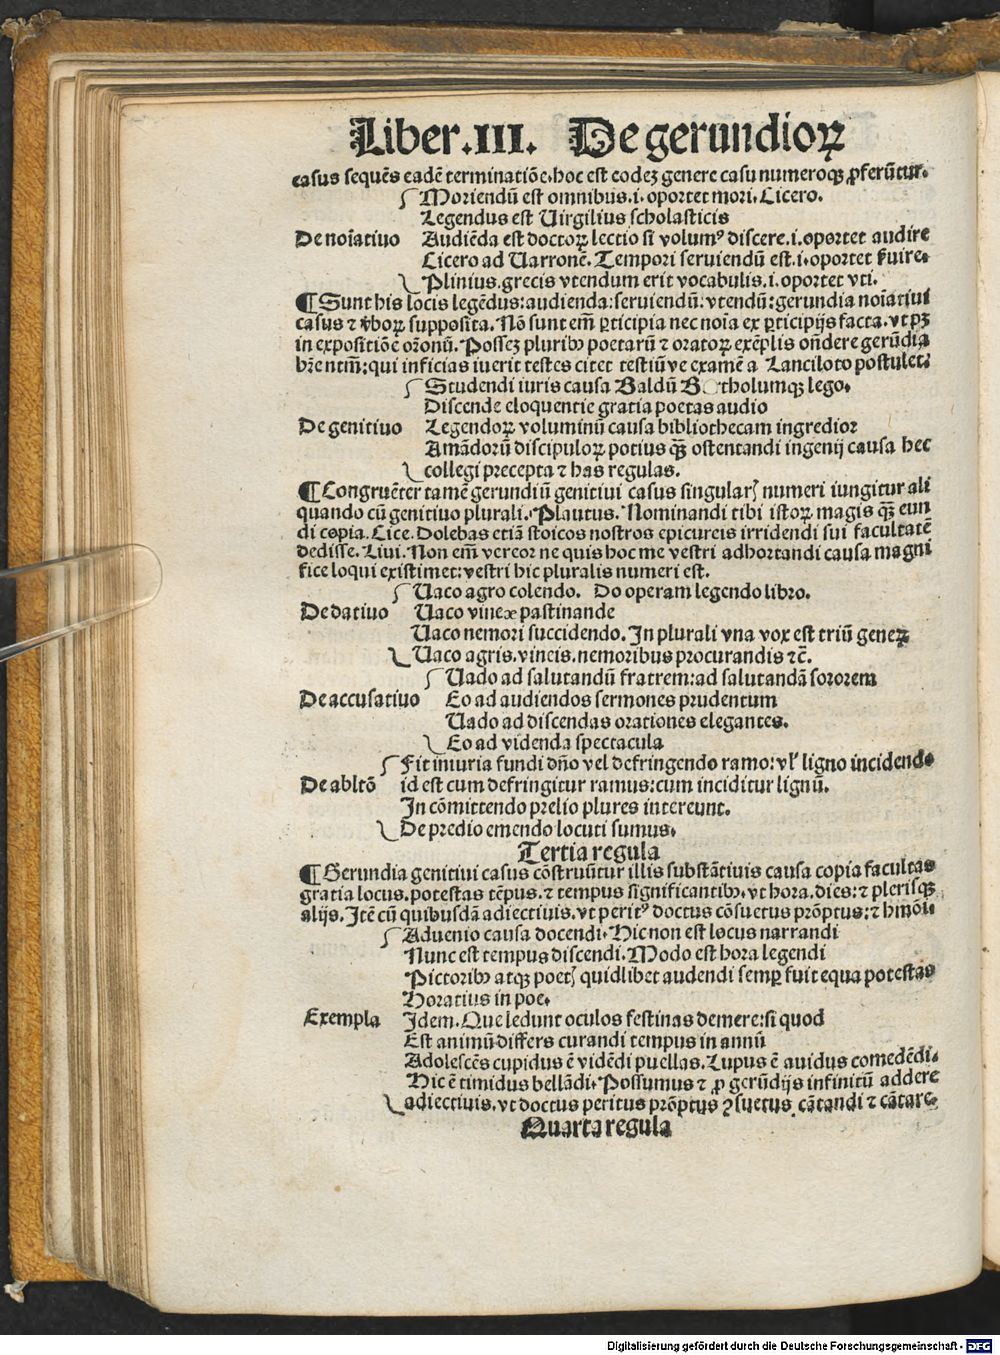 Liber .III. De gerundioꝝ
casus sequēs eadē terminatiōe. hoc est eodeʒ genere casu numeroqʒ ꝓferūtur.
Moriendū est omnibus. i. oportet mori. Cicero.
Legendus est Uirgilius scholasticis
De noīatiuo Audiēda est doctoꝝ lectio si volumꝰ discere. i. oportet audire
Cicero ad Uarronē. Tempori seruiendū est. i. oportet ẜuire.
Plinius. grecis vtendum erit vocabulis. i. oportet vti.
¶ Sunt his locis legēdus: audienda: seruiendū: vtendū: gerundia noīatiui
casus ⁊ v̄boꝝ supposita. Nō sunt em̄ ꝑticipia nec noīa ex ꝑticipijs facta. vt pʒ
in expositiōe oronū. Posseʒ pluribꝰ poetarū ⁊ oratoꝝ exēplis on̄dere gerūdia
hr̄e ntm̄: qui inficias iuerit testes citet testiū ve examē a Lanciloto postulet.
Studendi iuris causa Baldū B tholumqʒ lego.
Discende eloquentie gratia poetas audio
De genitiuo Legendoꝝ voluminū causa bibliothecam ingredior
Amādorū discipuloꝝ potius qʒ̄ ostentandi ingenij causa hec
collegi precepta ⁊ has regulas.
¶ Congruēter tamē gerundiū genitiui casus singularꝭ numeri iungitur ali
quando cū genitiuo plurali. Plautus. Nominandi tibi istoꝝ magis qʒ̄ eun
di copia. Cice. Dolebas etiā stoicos nostros epicureis irridendi sui facultatē
dedisse. Liui. Non em̄ vereor ne quis hoc me vestri adhortandi causa magni
fice loqui existimet: vestri hic pluralis numeri est.
Uaco agro colendo. Do operam legendo libro.
De datiuo Uaco vineæ pastinande
Uaco nemori succidendo. In plurali vna vox est triū geneꝝ
Uaco agris. vineis. nemoribus procurandis ⁊c̄.
Uado ad salutandū fratrem: ad salutandā sororem
De accusatiuo Eo ad audiendos sermones prudentum
Uado ad discendas orationes elegantes.
Eo ad videnda spectacula
Fit iniuria fundi dn̄o vel defringendo ramo: vl̓ ligno incidendo
De abltō id est cum defringitur ramus: cum inciditur lignū.
In cōmittendo prelio plures intereunt.
De predio emendo locuti sumus.
Tertia regula
¶ Gerundia genitiui casus cōstruūtur illis substātiuis causa copia facultas
gratia locus. potestas tēpus. ⁊ tempus significantibꝰ. vt hora. dies: ⁊ plerisqʒ
alijs. Itē cū quibusdā adiectiuis. vt peritꝰ doctus cōsuetus prōptus: ⁊ hmōi.
Aduenio causa docendi. Hic non est locus narrandi
Nunc est tempus discendi. Modo est hora legendi
Pictoribꝰ atqʒ poetꝭ quidlibet audendi semꝑ fuit equa potestas
Horatius in poe.
Exempla Idem. Que ledunt oculos festinas demere: si quod
Est animū differs curandi tempus in annū
Adolescēs cupidus ē vidēdi puellas. Lupus ē auidus comedēdi.
Hic ē timidus bellādi. Possumus ⁊ ꝓ gerūdijs infinitū addere
adiectiuis. vt doctus peritus prōptus ꝯsuetus cātandi ⁊ cātare.
Quarta regula
Digitalisierung gefördert durch die Deutsche Forschungsgemeinschaft - DFG